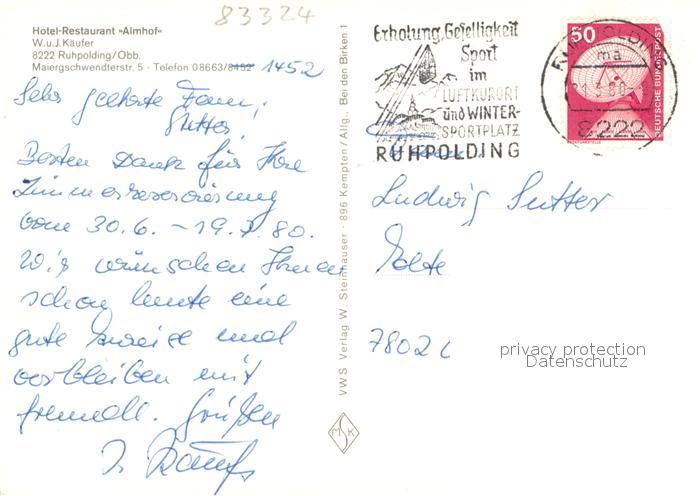 83324
Hotel-Restaurant »Almhof«
W. u. J. Käufer
8222 Ruhpolding/Obb.
Maiergschwendterstr. 5 - Telefon 08663/8452 1452
Sehr geehrte Fam.
Sutter!
Besten Dank für Ihre
Zimmerreservierung
vom 30.6. – 19.7.80.
Wir wünschen Ihnen
schon heute eine
gute Anreise und
verbleiben mit
freundl. Grüßen
VWS Verlag W. Steinhäuser · 896 Kempten/Allg., Bei den Birken 1
MSK
Erholung, Geselligkeit
Sport
im
LUFTKURORT
und WINTER-
SPORTPLATZ
RUHPOLDING
50
DEUTSCHE BUNDESPOST
RUHPOLDING
ma
80
8222
Ludwig Sutter
7802
privacy protection
Datenschutz